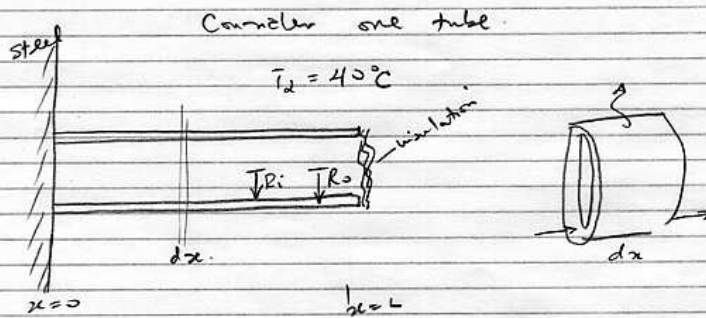 Consider one tube.
steel
T₂ = 40°C
insulation
Ri Ro
dx.
dx
x=0
x=L